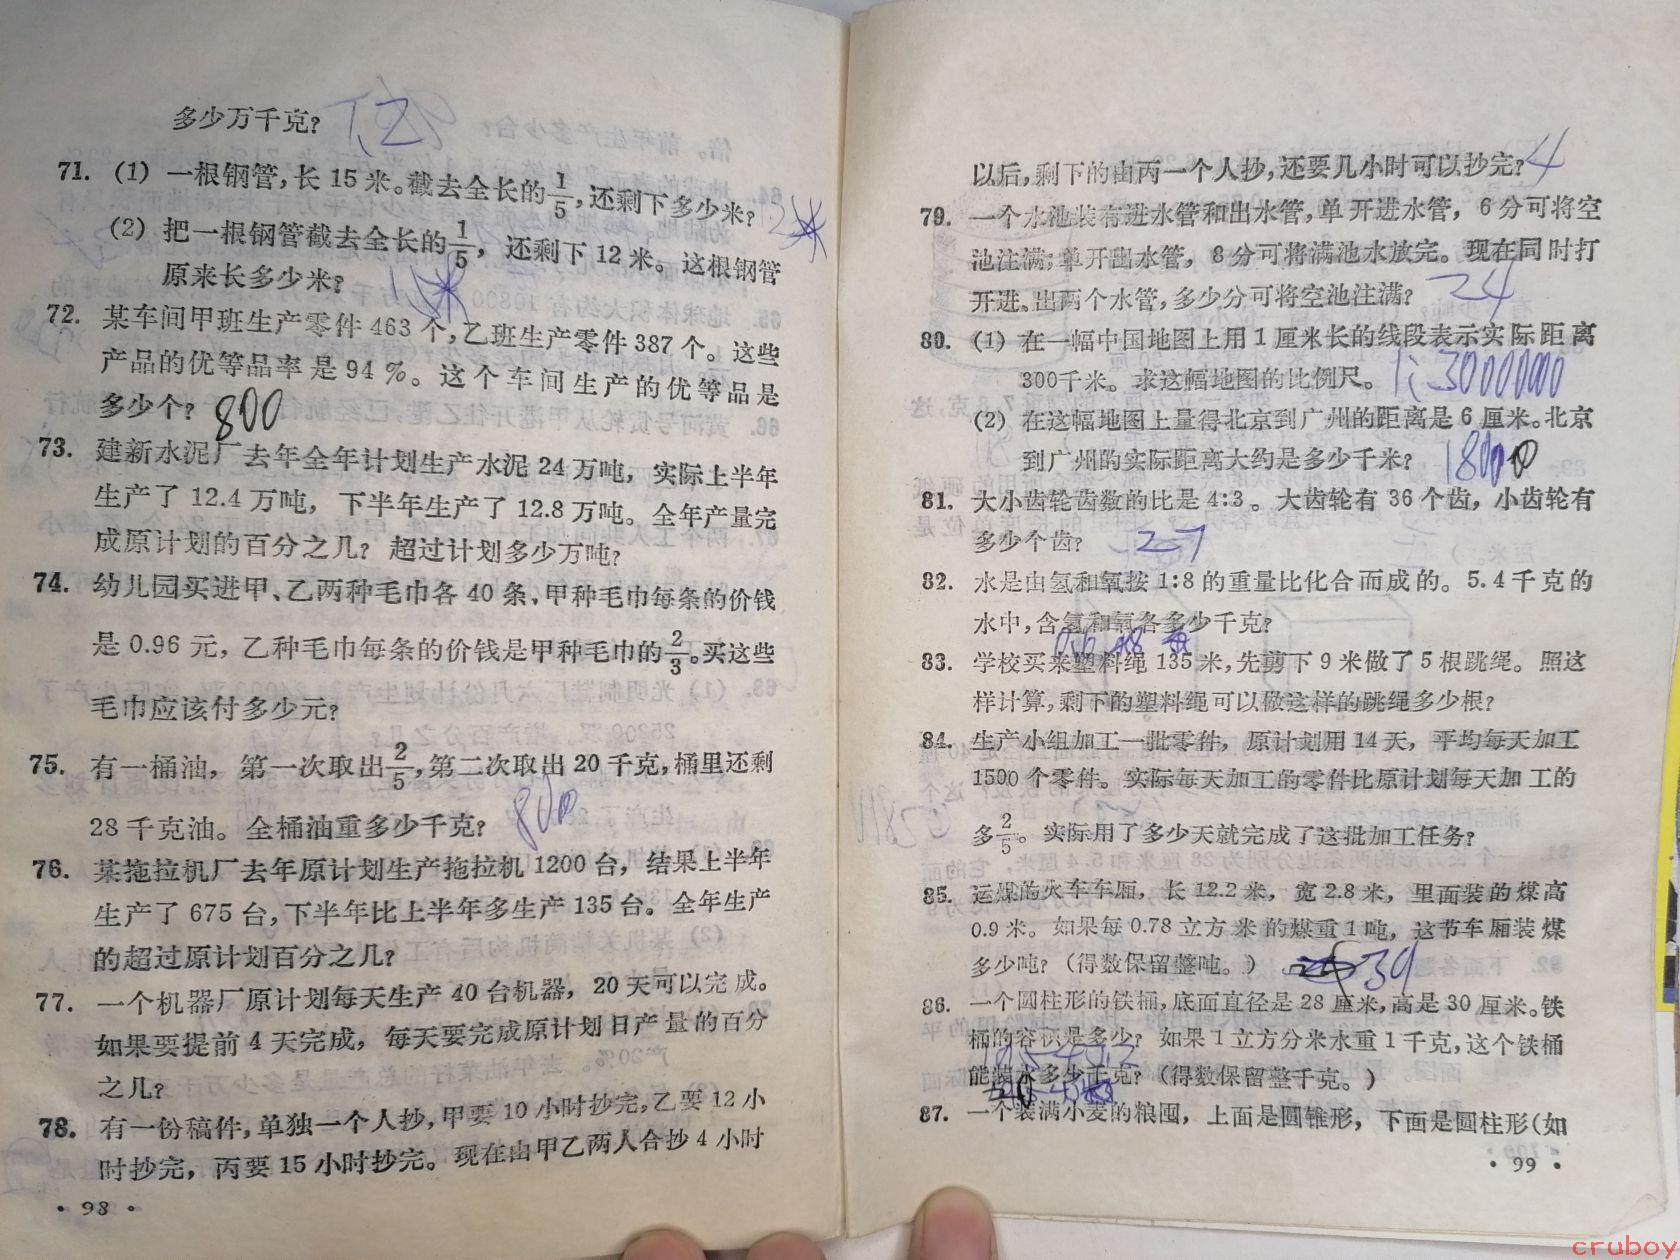 多少万千克?
71. (1) 一根钢管,长15米。截去全长的1/5,还剩下多少米? 12米
(2) 把一根钢管截去全长的1/5, 还剩下12米。这根钢管
原来长多少米?
72. 某车间甲班生产零件463个,乙班生产零件387个。这些
产品的优等品率是94%。这个车间生产的优等品是
多少个? 800
73. 建新水泥厂去年全年计划生产水泥24万吨, 实际上半年
生产了12.4万吨, 下半年生产了12.8万吨。全年产量完
成原计划的百分之几? 超过计划多少万吨?
74. 幼儿园买进甲、乙两种毛巾各40条,甲种毛巾每条的价钱
是0.96元, 乙种毛巾每条的价钱是甲种毛巾的2/3。买这些
毛巾应该付多少元?
75. 有一桶油, 第一次取出2/5,第二次取出20千克,桶里还剩
28千克油。全桶油重多少千克?
76. 某拖拉机厂去年原计划生产拖拉机1200台, 结果上半年
生产了675台,下半年比上半年多生产135台。全年生产
的超过原计划百分之几?
77. 一个机器厂原计划每天生产40台机器, 20天可以完成。
如果要提前4天完成, 每天要完成原计划日产量的百分
之几?
78. 有一份稿件,单独一个人抄,甲要10小时抄完,乙要12小
时抄完, 丙要15小时抄完。现在由甲乙两人合抄4小时
· 98 ·
以后,剩下的由丙一个人抄,还要几小时可以抄完? 4
79. 一个水池装有进水管和出水管,单开进水管, 6分可将空
池注满;单开出水管, 8分可将满池水放完。现在同时打
开进、出两个水管,多少分可将空池注满? 24
80. (1) 在一幅中国地图上用1厘米长的线段表示实际距离
300千米。求这幅地图的比例尺。 1:30000000
(2) 在这幅地图上量得北京到广州的距离是6厘米。北京
到广州的实际距离大约是多少千米? 1800
81. 大小齿轮齿数的比是4:3。大齿轮有36个齿, 小齿轮有
多少个齿? 27
82. 水是由氢和氧按1:8的重量比化合而成的。5.4千克的
水中,含氢和氧各多少千克?
0.6 4.8
83. 学校买来塑料绳135米,先剪下9米做了5根跳绳。照这
样计算,剩下的塑料绳可以做这样的跳绳多少根?
84. 生产小组加工一批零件, 原计划用14天, 平均每天加工
1500个零件。实际每天加工的零件比原计划每天加工的
多2/5。实际用了多少天就完成了这批加工任务?
85. 运煤的火车车厢, 长12.2米, 宽2.8米, 里面装的煤高
0.9米。如果每0.78立方米的煤重1吨, 这节车厢装煤
多少吨? (得数保留整吨。) 39
86. 一个圆柱形的铁桶,底面直径是28厘米,高是30厘米。铁
桶的容积是多少? 如果1立方分米水重1千克,这个铁桶
能装水多少千克? (得数保留整千克。)
87. 一个装满小麦的粮囤, 上面是圆锥形, 下面是圆柱形(如
· 99 ·
cruboy